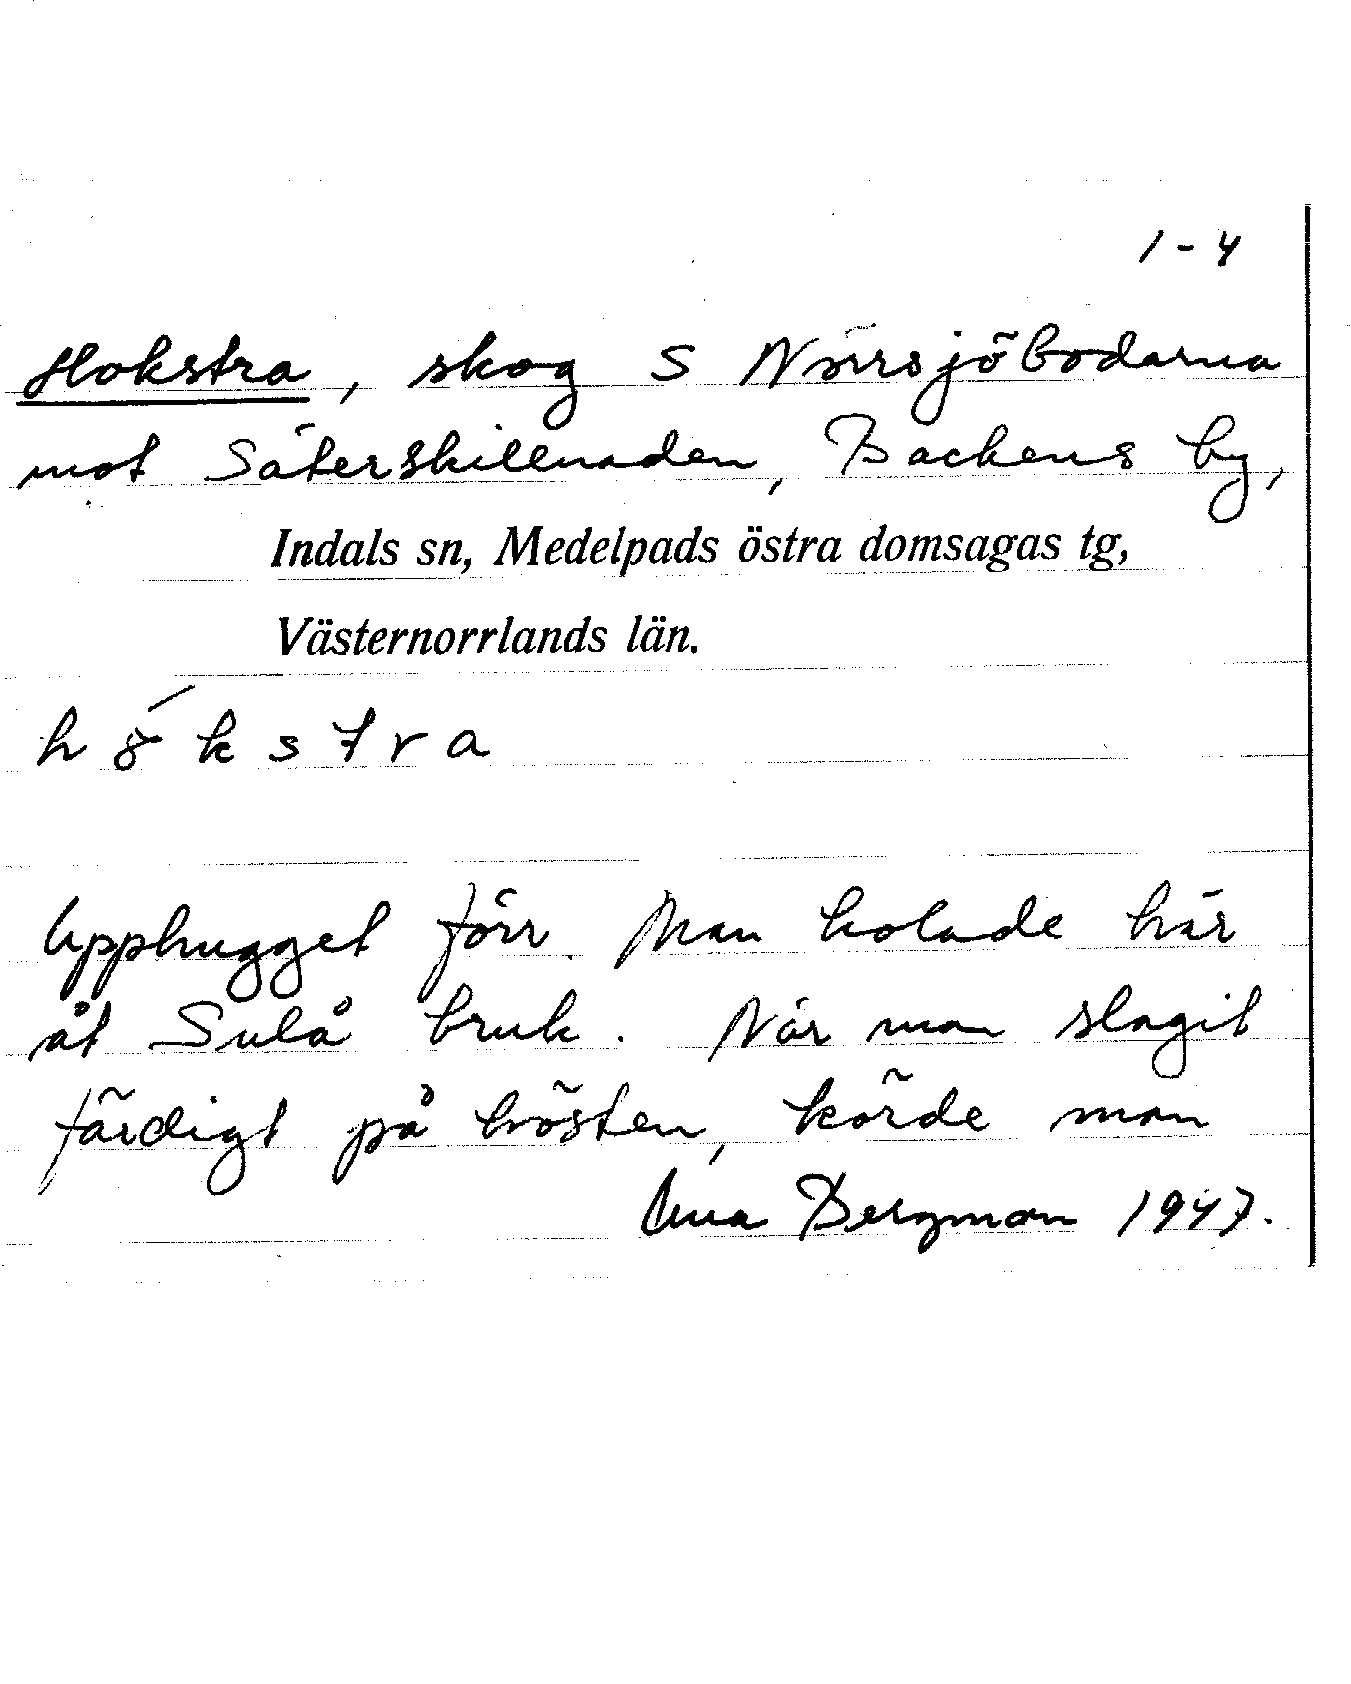 1-4
Hokstra, skog S Norrsjöbodarna
mot Säterskillnaden, Backens by,
Indals sn, Medelpads östra domsagas tg,
Västernorrlands län.
Upphugget förr. Man kolade här
åt Sulå bruk. När man slagit
färdigt på hösten, körde man
Bergman 1947.